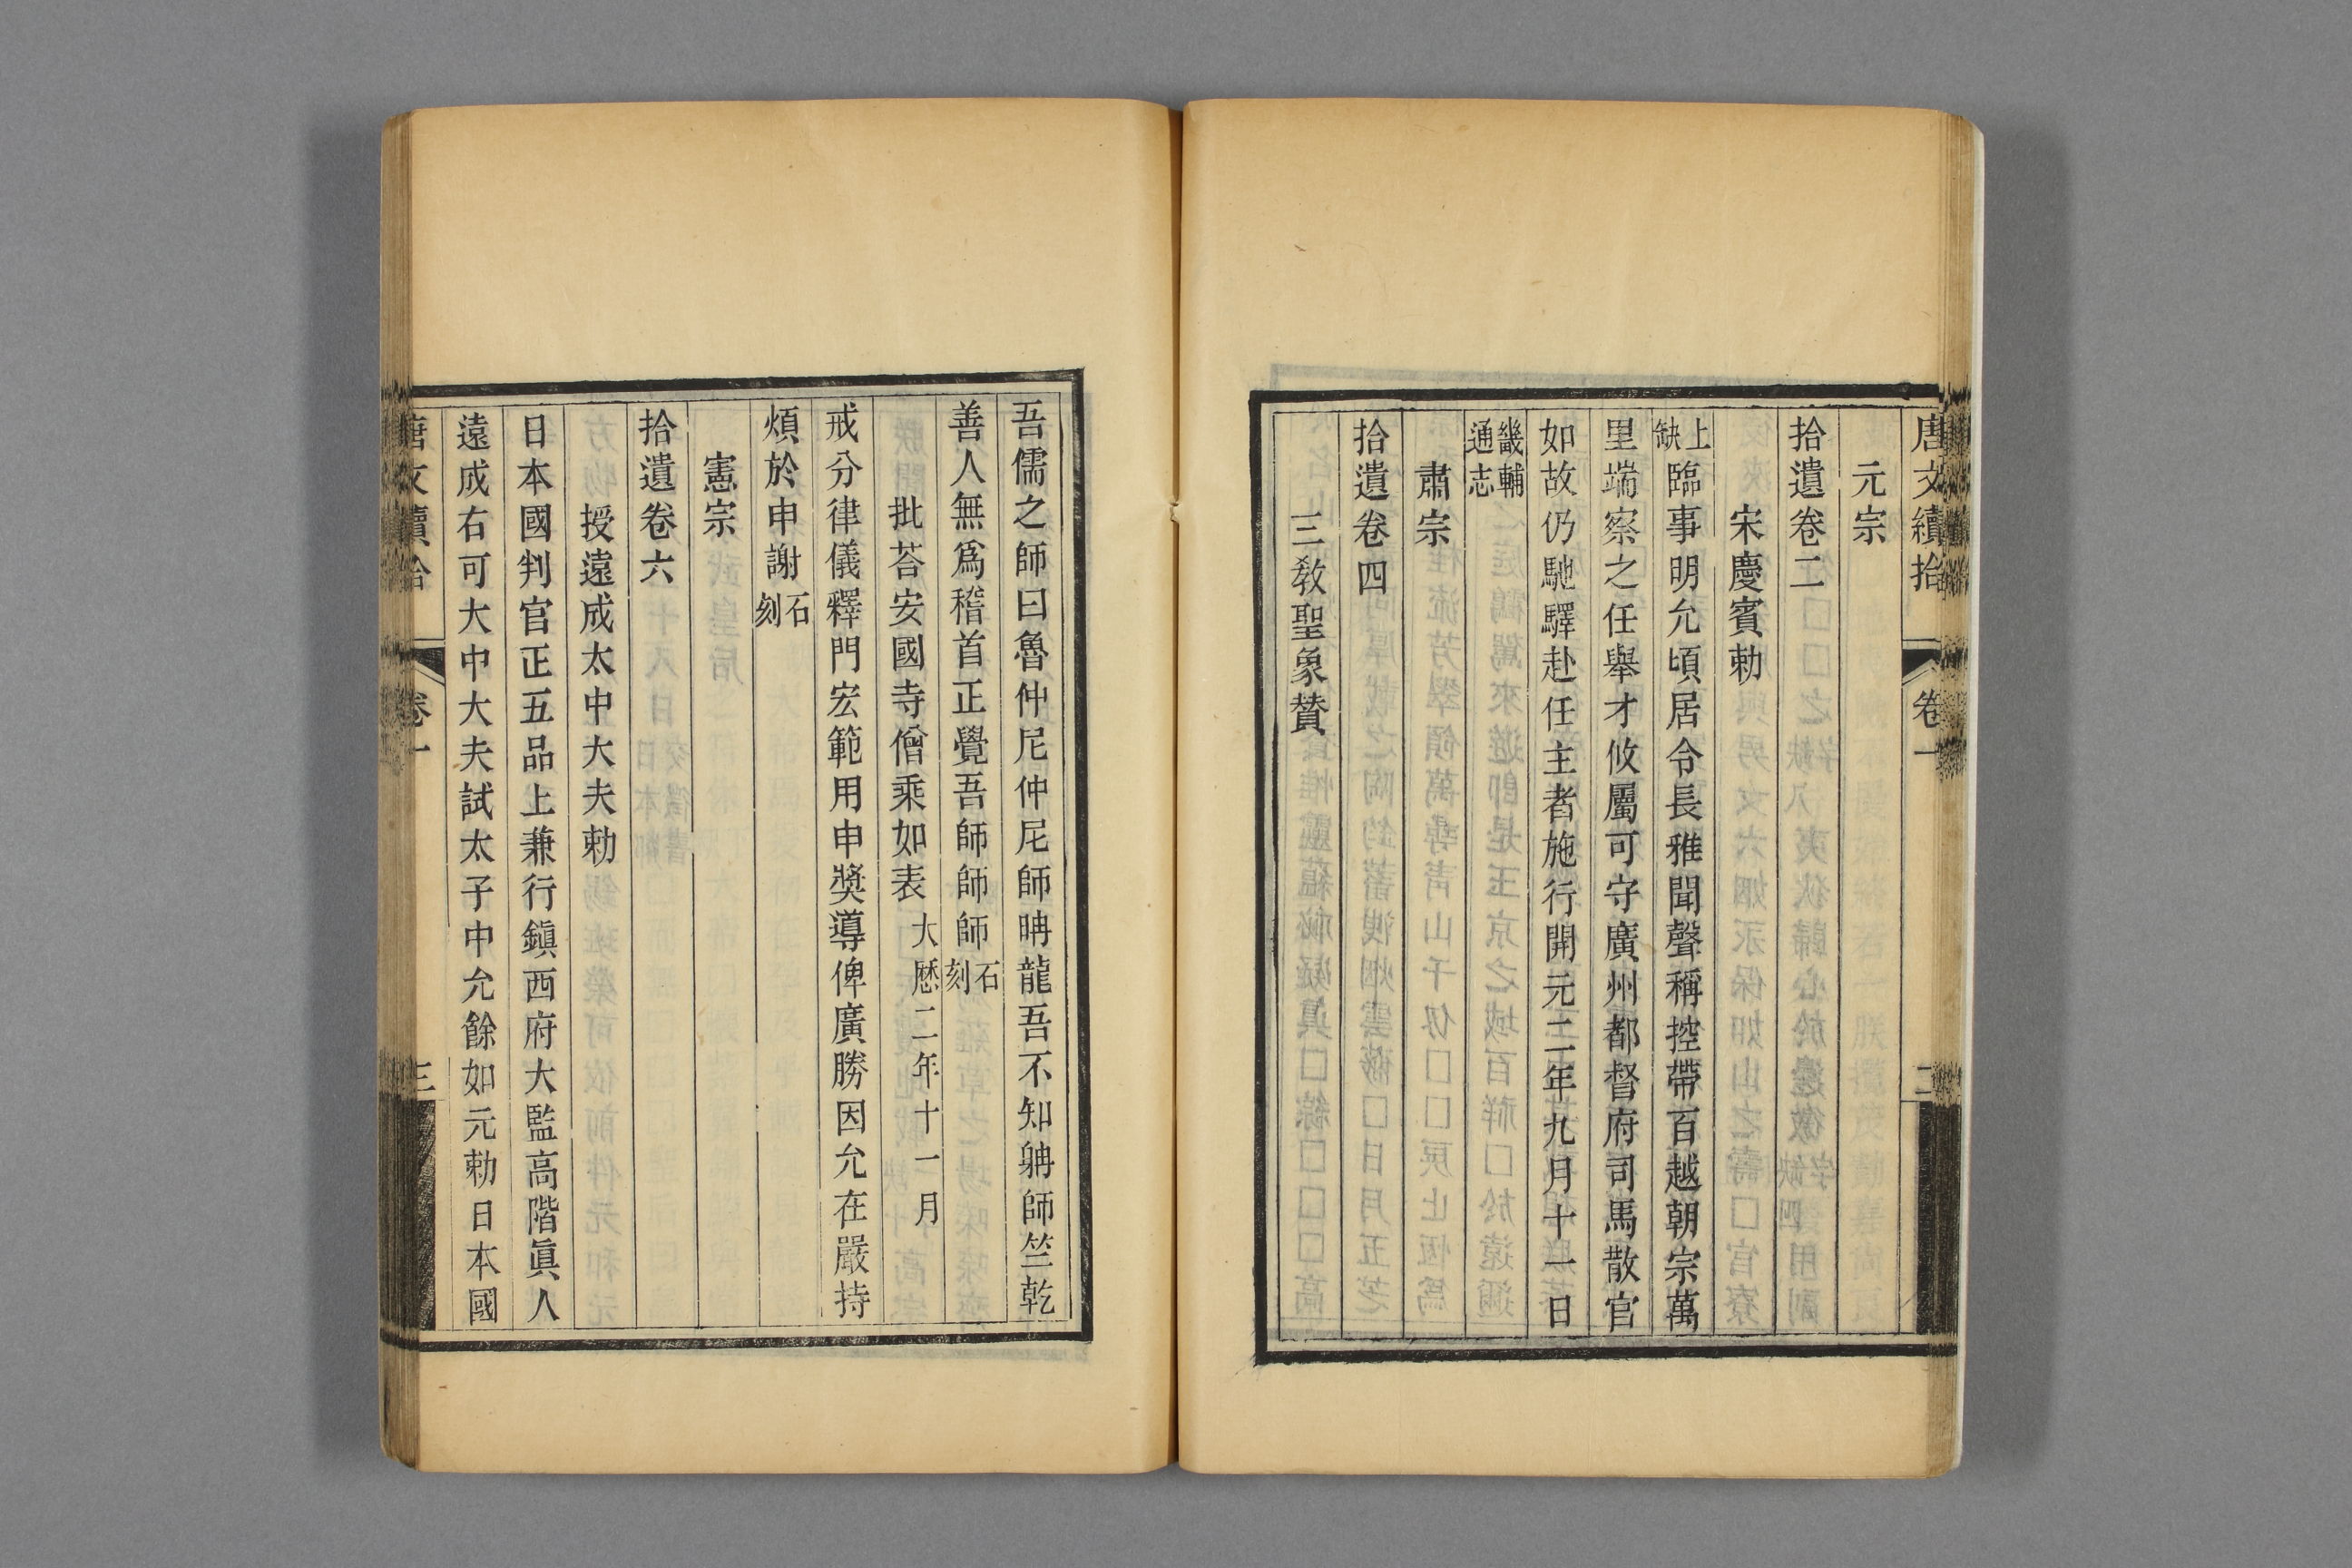 唐文續拾 卷一 二
元宗
拾遺卷二
宋慶賓勅
上缺臨事明允頃居令長雅聞聲稱控帶百越朝宗萬
里端察之任舉才攸屬可守廣州都督府司馬散官
如故仍馳驛赴任主者施行開元二年九月十一日
畿輔通志
肅宗
拾遺卷四
三敎聖象贊
吾儒之師曰魯仲尼仲尼師聃龍吾不知聃師竺乾
善人無爲稽首正覺吾師師師石刻
批荅安國寺僧乘如表大厯二年十一月
戒分律儀釋門宏範用申奬導俾廣勝因允在嚴持
煩於申謝石刻
憲宗
拾遺卷六
授遠成太中大夫勅
日本國判官正五品上兼行鎭西府大監高階眞人
遠成右可大中大夫試太子中允餘如元勅日本國
唐文續拾 卷一 三